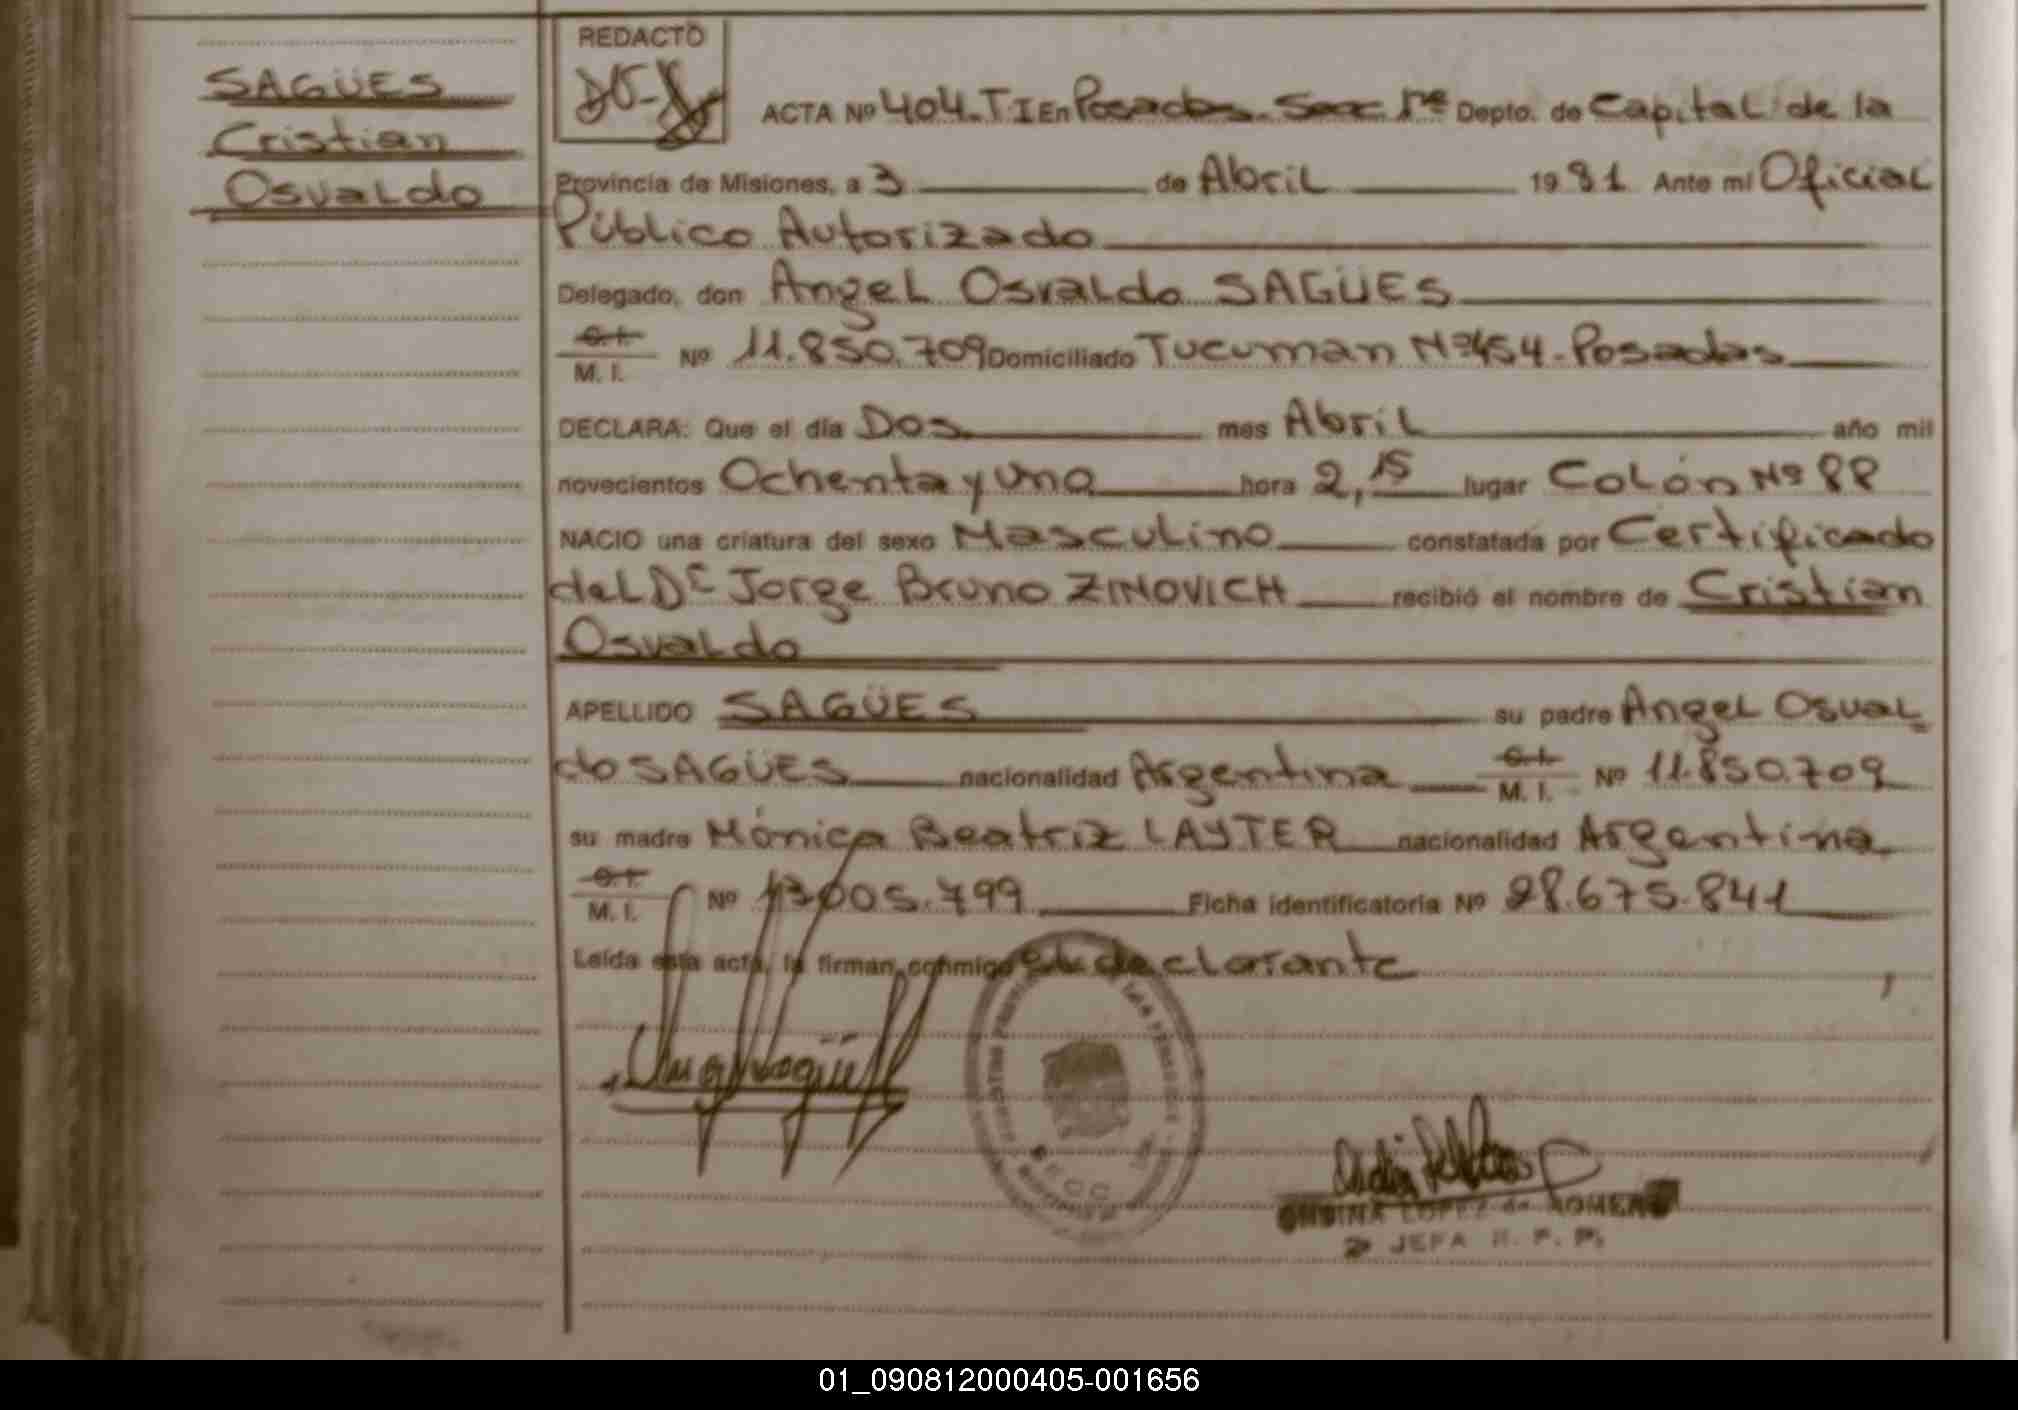 SAGÜES
Cristian
Osvaldo
REDACTO
ACTA Nº 404.T I En Posadas. Secc 1ra Depto. de Capital de la
Provincia de Misiones, a 3 de Abril 1981 Ante mi Oficial
Público Autorizado
Delegado, don Angel Osvaldo SAGÜES
C.I.
M. I. Nº 11.850.709 Domiciliado Tucuman Nº 454-Posadas
DECLARA: Que el día Dos mes Abril año mil
novecientos Ochenta y uno hora 2,15 lugar Colón Nº 88
NACIO una criatura del sexo Masculino constatada por Certificado
del Dr Jorge Bruno ZINOVICH recibió el nombre de Cristian
Osvaldo
APELLIDO SAGÜES su padre Angel Osval
do SAGÜES nacionalidad Argentina C.I. M. I. Nº 11.850.709
su madre Mónica Beatriz LAYTER nacionalidad Argentina
C.I.
M. I. Nº 13.005.799 Ficha identificatoria Nº 28.675.841
Leída esta acta, la firman conmigo el declarante
ONDINA LOPEZ de ROMERO
JEFA R. P. P.
01_090812000405-001656